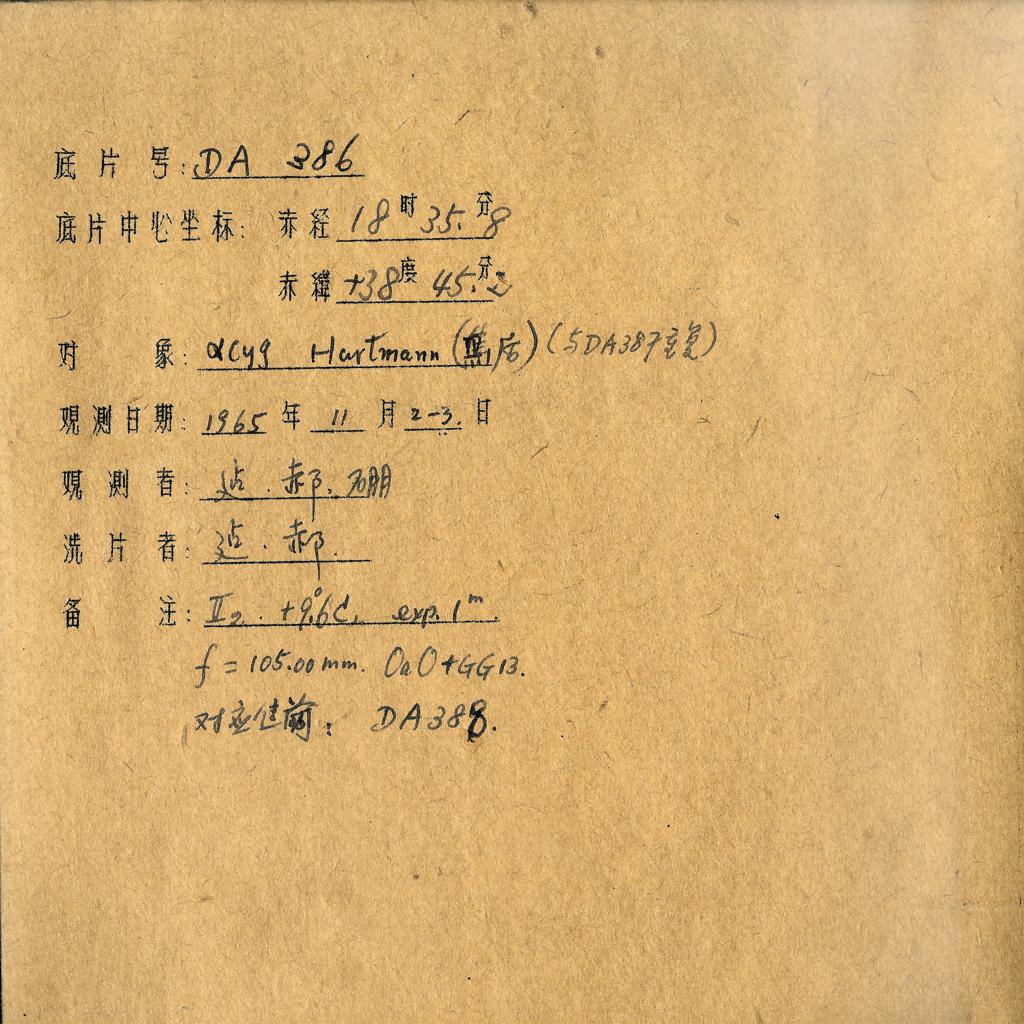 底片号: DA 386
底片中心坐标: 赤经 18时 35.分8
赤纬 +38度 45.分2
对象: αCyg Hartmann (焦后) (与DA387重复)
观测日期: 1965 年 11 月 2-3. 日
观测者: 赵. 郝. 硼
洗片者: 赵. 郝.
备注: II₂. +9.°6C, exp. 1ᵐ.
f = 105.00mm. OaO+GG13.
对应焦前: DA388.